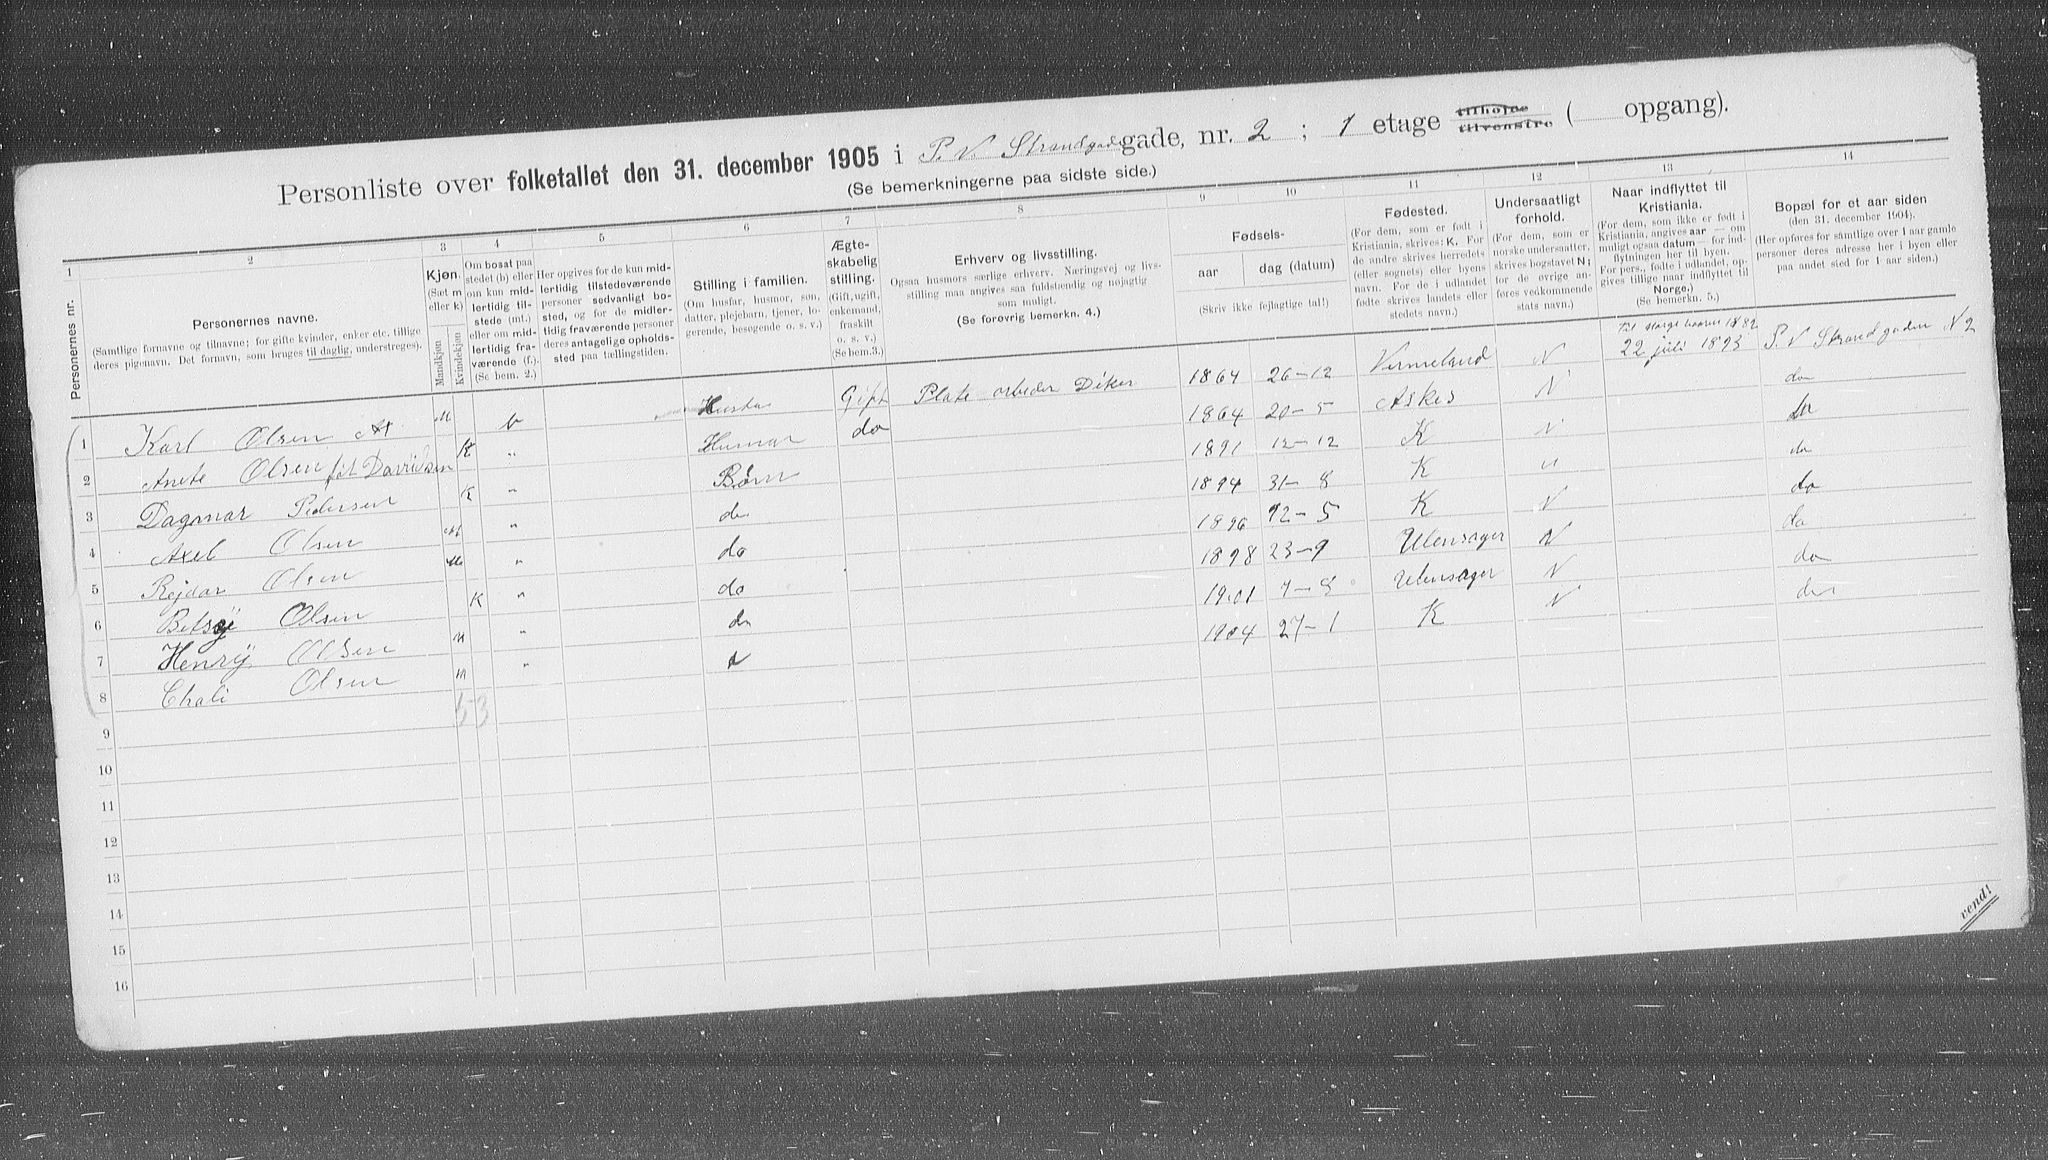 Personliste over folketallet den 31. december 1905 i P. N Strandgade gade, nr. 2 ; 1 etage tilhøire tilvenstre ( opgang).
(Se bemerkningerne paa sidste side.)
1 2 3 4 5 6 7 8 9 10 11 12 13 14
Personernes nr.
Personernes navne.
(Samtlige fornavne og tilnavne; for gifte kvinder, enker etc. tillige
deres pigenavn. Det fornavn, som bruges til daglig, understreges).
Kjøn.
(Sæt m
eller k)
Mandkjøn
Kvindekjøn
Om bosat paa
stedet (b) eller
om kun mid-
lertidig til-
stede (mt.)
eller om mid-
lertidig fra-
værende (f.).
(Se bem. 2.)
Her opgives for de kun mid-
lertidig tilstedeværende
personer sedvanligt bo-
sted, og for de midler-
tidig fraværende personer
deres antagelige opholds-
sted paa tællingstiden.
Stilling i familien.
(Om husfar, husmor, søn,
datter, plejebarn, tjener, lo-
gerende, besøgende o. s. v.)
Ægte-
skabelig
stilling.
(Gift, ugift,
enkemand,
fraskilt
o. s. v.)
(Se bem.3.)
Erhverv og livsstilling.
Ogsaa husmors særlige erhverv. Næringsvej og livs-
stilling maa angives saa fuldstændig og nøjagtig
som muligt.
(Se forøvrig bemerkn. 4.)
Fødsels-
aar
dag (datum)
(Skriv ikke fejlagtige tal!)
Fødested.
(For dem, som er født i
Kristiania, skrives: K. For
de andre skrives herredets
(eller sognets) eller byens
navn. For de i udlandet
fødte skrives landets eller
stedets navn.)
Undersaatligt
forhold.
(For dem, som er
norske undersaatter,
skrives bogstavet N;
for de øvrige an-
føres vedkommende
stats navn.)
Naar indflyttet til
Kristiania.
(For dem, som ikke er født i
Kristiania, angives aar — om
muligt ogsaa datum — for ind-
flytningen her til byen.
For pers., fødte i udlandet, op-
gives tillige naar indflyttet til
Norge.)
(Se bemerkn. 5.)
Bopæl for et aar siden
(den 31. december 1904).
(Her opføres for samtlige over 1 aar gamle
personer deres adresse her i byen eller
paa andet sted for 1 aar siden.)
1882
1 Karl Olsen M b Gift Plate arbeder 1864 26-12 Vermeland N 22 juli 1893 P. N Strandgaden N 2
2 Anete Olsen Davidsen K " Husmor do 1864 20-5 Asker N do
3 Dagmar Pedersen K " Børn 1891 12-12 K N do
4 Axel Olsen M " do 1894 31-8 K N do
5 Rejdar Olsen M " do 1896 12-5 K N do
6 Betsy Olsen K " do 1898 23-9 Ulensager N do
7 Henry Olsen M " do 1901 7-8 Ulensager N do
8 Chali Olsen M " 1904 27-1 K N do
53
9
10
11
12
13
14
15
16
vend!